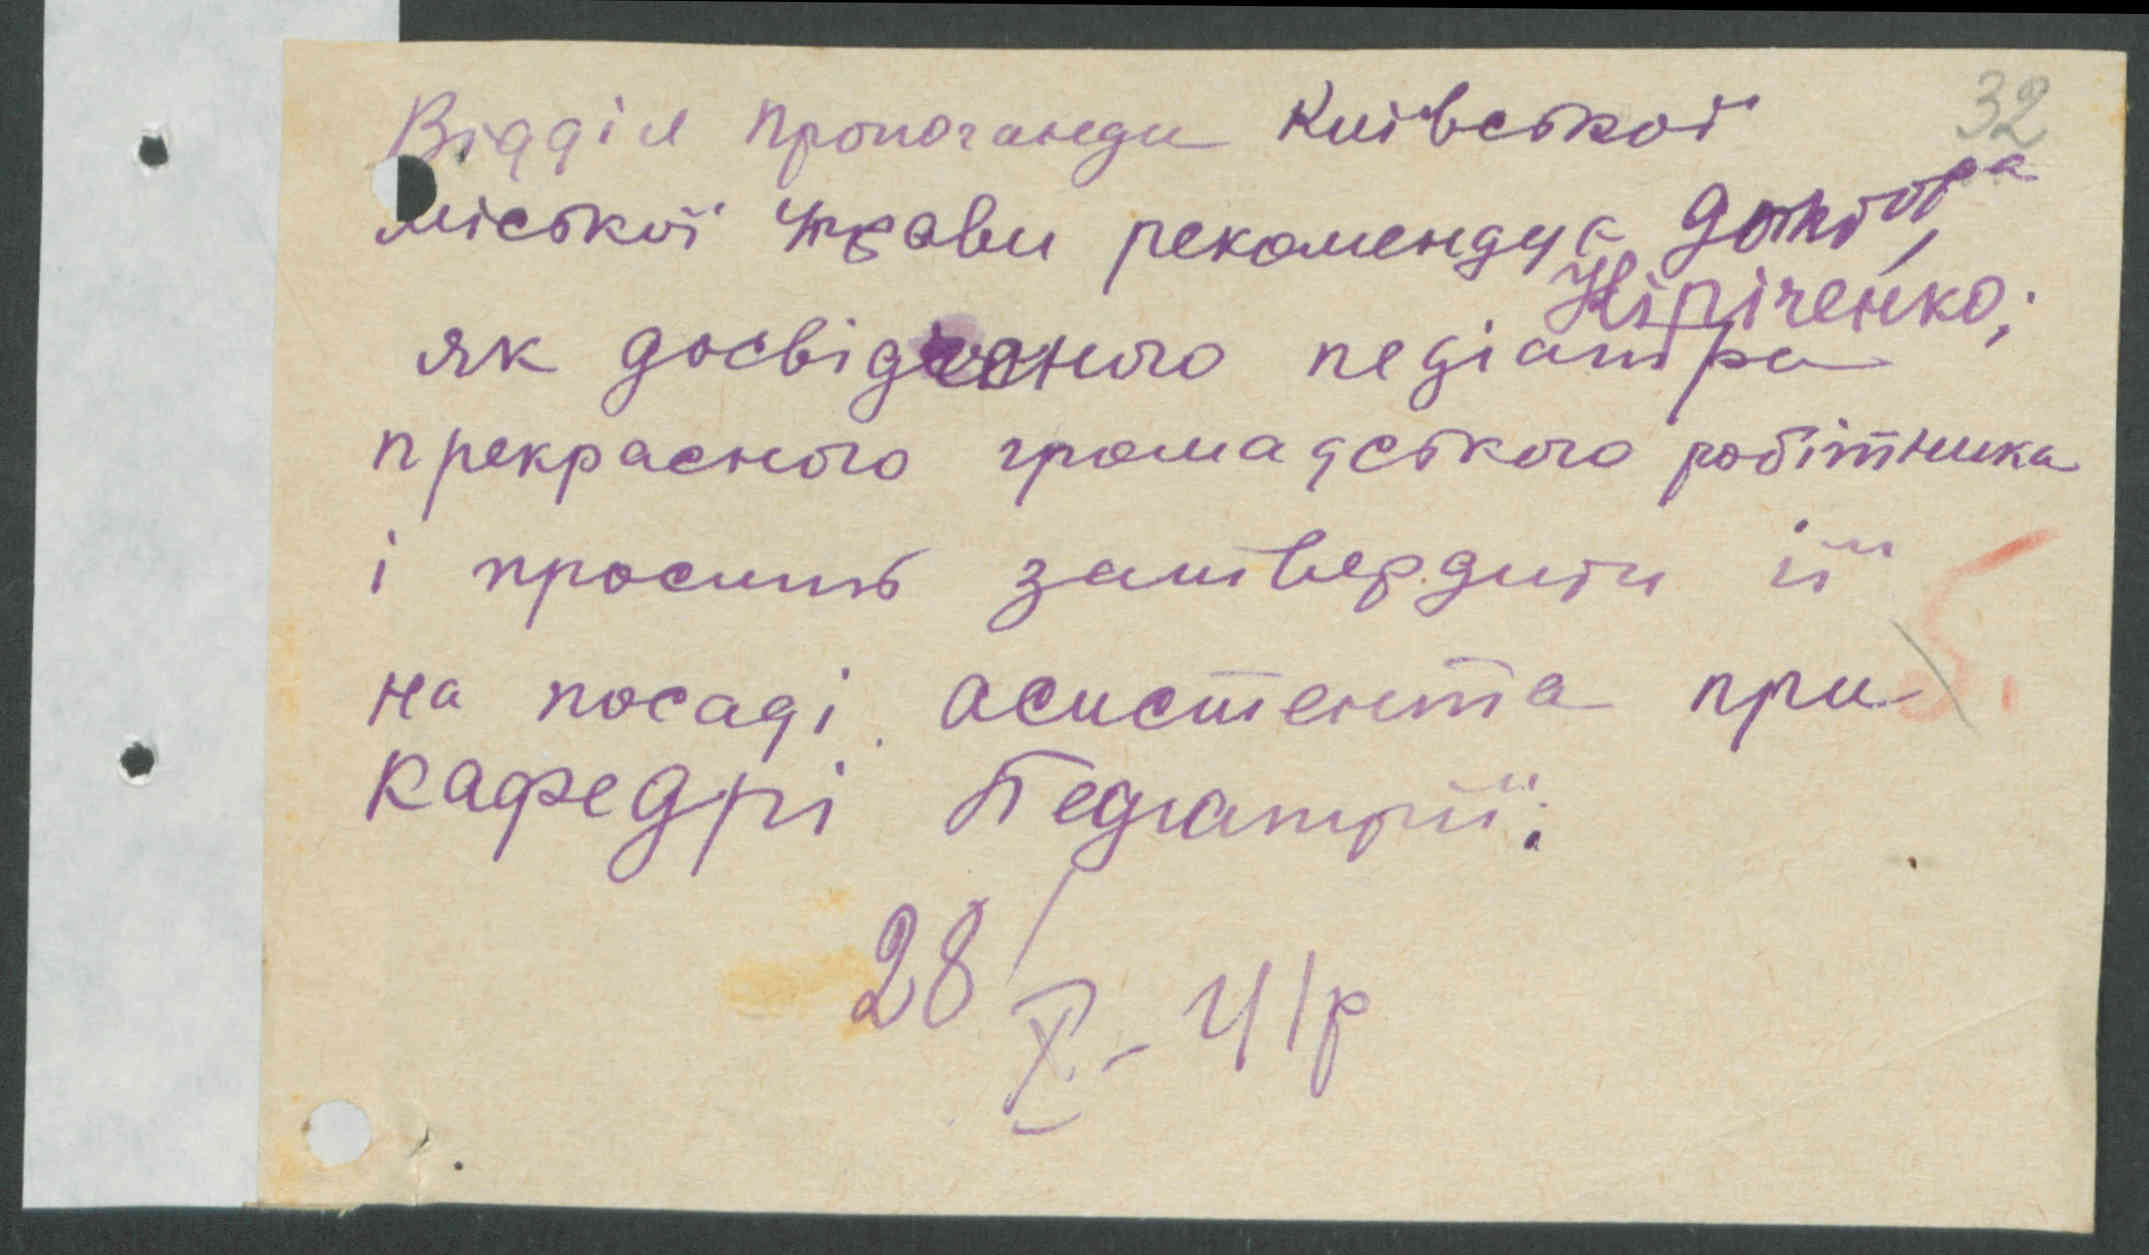 32
Відділ пропоганди Київської
міської управи рекомендує доктора
Кіріченко,
як досвідченого педіатра
прекрасного громадського робітника
і просить затвердити її
на посаді асистента при
кафедрі Педіатрії.
28/X - 41 р